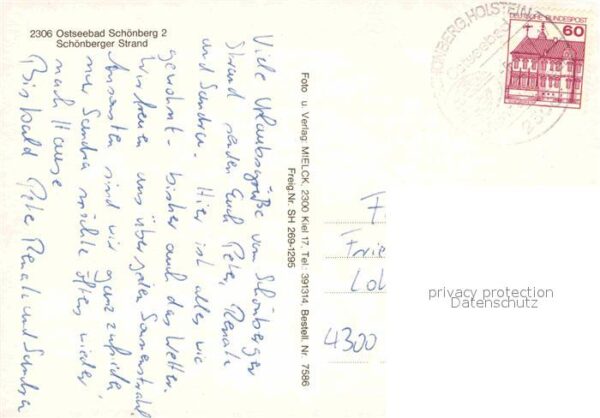 2306 Ostseebad Schönberg 2
Schönberger Strand
Viele Urlaubsgrüße vom Schönberger
Strand senden Euch Peter, Renate
und Sandra. Hier ist alles wie
gewohnt - bisher auch das Wetter.
Wir freuen uns über jeden Sonnenstrahl
Ansonsten sind wir ganz zufrieden
nur Sandra möchte öfters wieder
nach Hause
Bis bald Peter Renate und Sandra
Foto u. Verlag: MIELCK, 2300 Kiel 17, Tel.: 391314, Bestell. Nr. 7586
Freig.Nr. SH 269-1295
SCHÖNBERG, HOLSTEIN
DEUTSCHE BUNDESPOST
60
F
Frie
Loh
4300
privacy protection
Datenschutz